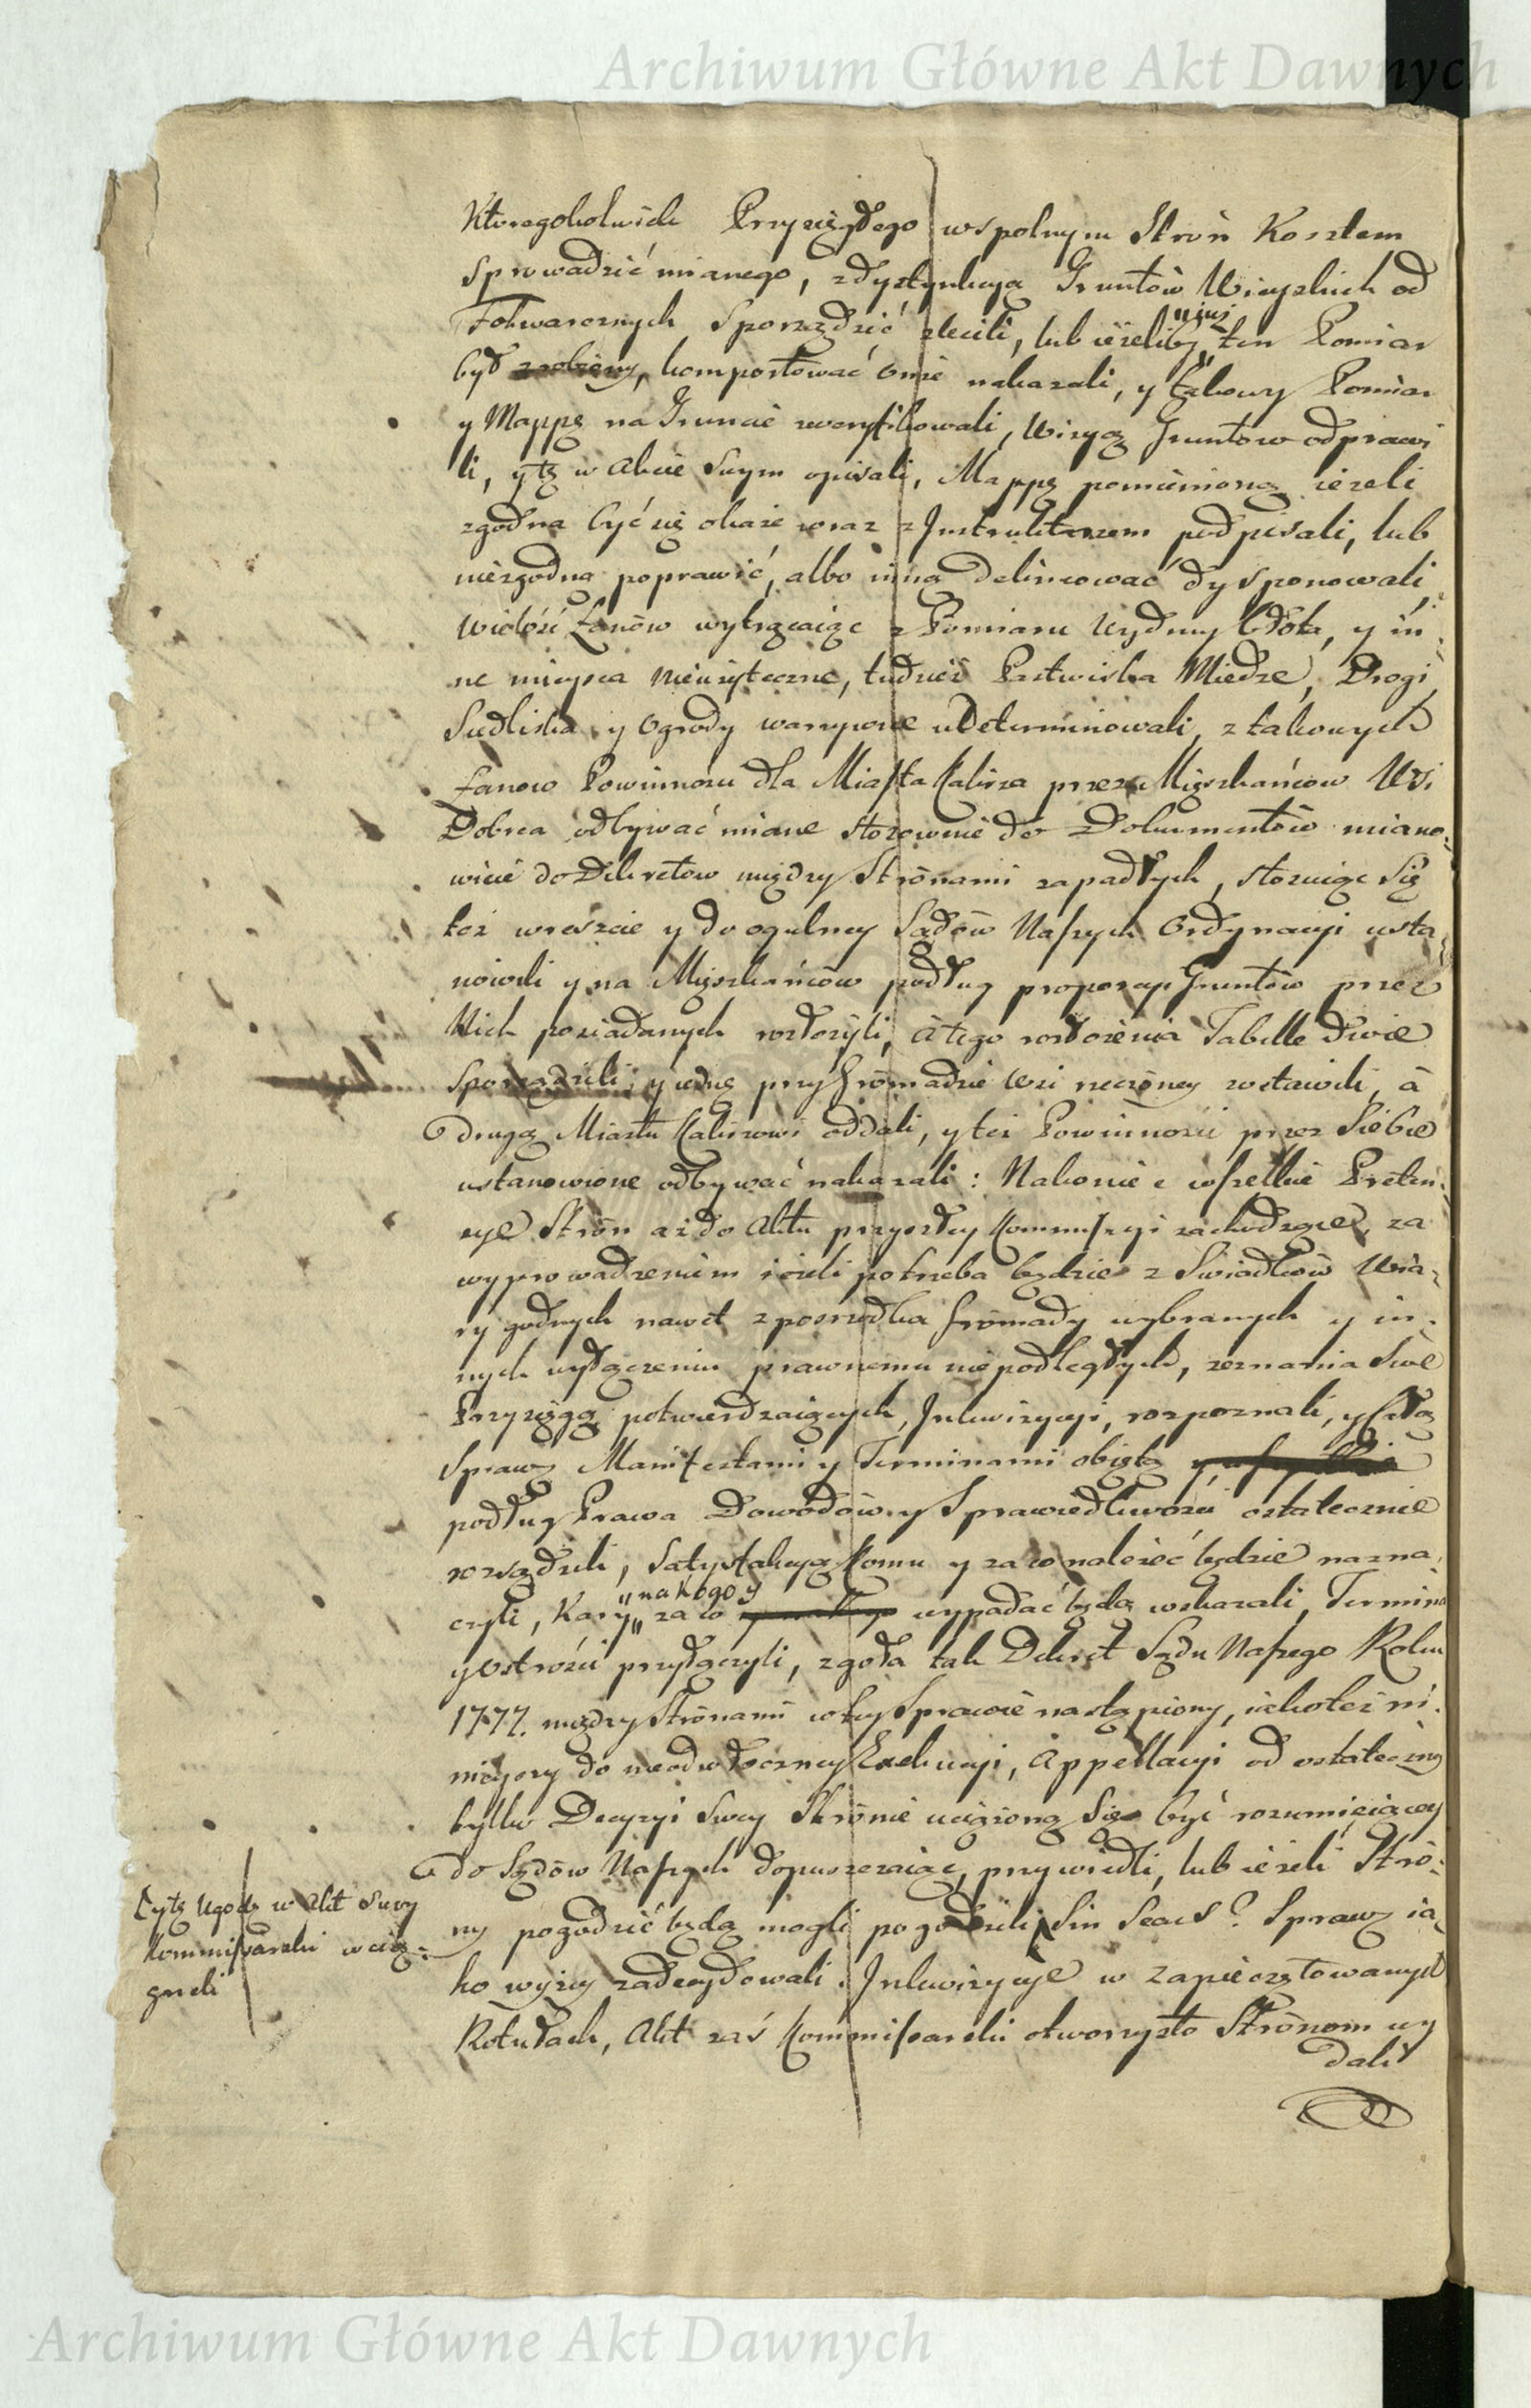 Archiwum Główne Akt Dawnych
Ktoregokolwiek Przysięgłego wspolnym Stron Kosztem
sprowadzić mianego, z dystynkcyą Gruntów Wieyskich od
Folwarcznych sporządzić zlecili, lub ieżeliby „iuż„ ten Pomiar
był zrobiony, komportować onże nakazali, y takowy Pomiar
y Mappę na Gruncie zweryfikowali, Wizyą Gruntow odprawi
li, y tę w Akcie swym opisali, Mappę pomienioną ieżeli
zgodna być się okaże wraz z Instruktarzem podpisali, lub
niezgodną poprawić, albo inną delineować dysponowali,
Wielość Łanów wytrącaiąc z Pomiaru Wydmy błota, y in-
ne mieysca nieużyteczne, tudzież Pastwiska Miedze, Drogi,
Siedliska, y Ogrody warzywne udeterminowali, z takowych
Łanow Powinności dla Miasta Kalisza przez Mięszkańcow Wsi
Dobrca odbywać miane stosownie do Dokumentów miano-
wicie do Dekretow między Stronami zapadłych, stosuiąc się
też wreszcie y do ogulney Sądów Naszych Ordynacyi usta-
nowili y na Mięszkańców podług proporcyi Gruntów przez
Nich posiadanych rozłożyli, à tego rozłożenia Tabelle dwie
sporządzili, y iednę przy Gromadzie Wsi rzeczoney zostawili, à
drugą Miastu Kaliszowi oddali, y też Powinności przez Siebie
ustanowione odbywać nakazali: Nakoniec wszelkie Preten-
sye Stron aż do Aktu przyszłey Kommissyi zachodzące, za
wyprowadzeniem ieżeli potrzeba będzie z Swiadków Wia-
ry godnych nawet z posrzodka Gromady wybranych y in-
nych wyłączeniu prawnemu niepodległych, zeznania swe
Przysięgą potwierdzaiących, Inkwizycyi, rozpoznali, y całą
Sprawę Manifestami y Terminami obiętą
podług Prawa Dowodów, y Sprawiedliwości ostatecznie
rozsądzili, satysfakcyą komu y za co należeć będzie nazna-
czyli, Kary „na kogo y„ za co wypadać będą wskazali, Termina
y Ostrości przyłączyli, zgoła tak Dekret Sądu Naszego Roku
1777. między Stronami w tey Sprawie nastąpiony, iakoteż ni-
nieyszy do nieodwłoczney Exekucyi, Appellacyi od ostateczney
tylko Decyzyi swey Stronie uciążoną się być rozumieiącey
do Sądów Naszych dopuszczaiąc, przywiedli, lub ieżeli Stro-
ny pogodzić będą mogli pogodzili, Sin Secus? Sprawę ia-
ko wyżey zadecydowali. Inkwizycye w Zapieczętowanych
Rotułach, Akt zaś Kommissarski otworzysto Stronom wy
dali
Y tę Ugodę w Akt swoy
Kommissarski wcią-
gneli
Archiwum Główne Akt Dawnych